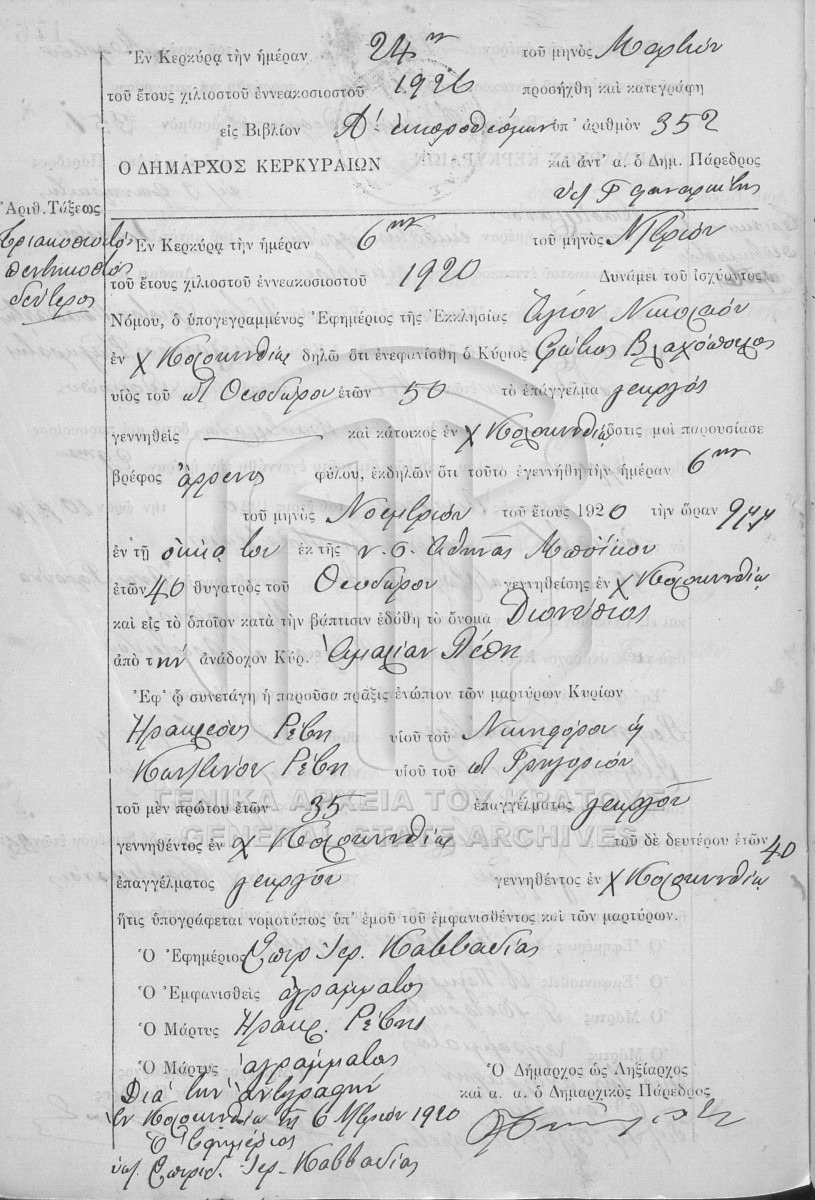 Ἐν Κερκύρᾳ τὴν ἡμέραν 24ην τοῦ μηνὸς Μαρτίου
τοῦ ἔτους χιλιοστοῦ ἐννεακοσιοστοῦ 1926 προσήχθη καὶ κατεγράφη
εἰς Βιβλίον Α΄ ἐκπροθέσμων ὑπ᾽ ἀριθμὸν 352
Ο ΔΗΜΑΡΧΟΣ ΚΕΡΚΥΡΑΙΩΝ καὶ ἀντ᾽ α. ὁ Δημ. Πάρεδρος
Ἀριθ. Τάξεως
Τριακοσιοστός
πεντηκοστός
δεύτερος
Ἐν Κερκύρᾳ τὴν ἡμέραν 6ην τοῦ μηνὸς Νβρίου
τοῦ ἔτους χιλιοστοῦ ἐννεακοσιοστοῦ 1920 Δυνάμει τοῦ ἰσχύοντος
Νόμου, ὁ ὑπογεγραμμένος Ἐφημέριος τῆς Ἐκκλησίας Ἁγίου Νικολάου
ἐν χ Καρουσάδες δηλῶ ὅτι ἐνεφανίσθη ὁ Κύριος Φώτιος Βλαχόπουλος
υἱὸς τοῦ Θεοδώρου ἐτῶν 50 τὸ ἐπάγγελμα γεωργός
γεννηθεὶς καὶ κάτοικος ἐν χ ὅστις μοὶ παρουσίασε
βρέφος ἄρρενος φύλου, ἐκδηλῶν ὅτι τοῦτο ἐγεννήθη τὴν ἡμέραν 6ην
τοῦ μηνὸς Νοεμβρίου τοῦ ἔτους 1920 τὴν ὥραν 9
ἐν τῇ οἰκίᾳ του ἐκ τῆς ν. σ. Ἀθηνᾶς Μποΐκου
ἐτῶν 40 θυγατρὸς τοῦ Θεοδώρου γεννηθείσης ἐν χ
καὶ εἰς τὸ ὁποῖον κατὰ τὴν βάπτισιν ἐδόθη τὸ ὄνομα Διονύσιος
ἀπὸ τὴν ἀνάδοχον Κύρ. Ἀμαλίαν Ρέβη
Ἐφ᾽ ᾧ συνετάγη ἡ παροῦσα πρᾶξις ἐνώπιον τῶν μαρτύρων Κυρίων
Ἡρακλέους Ρέβη υἱοῦ τοῦ Νικηφόρου
Κων/τίνου Ρέβη υἱοῦ τοῦ Γρηγορίου
ΓΕΝΙΚΑ ΑΡΧΕΙΑ ΤΟΥ ΚΡΑΤΟΥΣ
τοῦ μὲν πρώτου ἐτῶν 35 ἐπαγγέλματος γεωργοῦ
GENERAL STATE ARCHIVES
γεννηθέντος ἐν χ τοῦ δὲ δευτέρου ἐτῶν 40
ἐπαγγέλματος γεωργοῦ γεννηθέντος ἐν χ
ἥτις ὑπογράφεται νομοτύπως ὑπ᾽ ἐμοῦ τοῦ ἐμφανισθέντος καὶ τῶν μαρτύρων.
Ὁ Ἐφημέριος Σπυρ. Ἱερ. Καββαδίας
Ὁ Ἐμφανισθεὶς ἀγράμματος
Ὁ Μάρτυς Ἡρακλ. Ρέβης
Ὁ Μάρτυς ἀγράμματος
Ὁ Δήμαρχος ὡς Ληξίαρχος
καὶ α. α. ὁ Δημαρχικὸς Πάρεδρος
Διὰ τὴν ἀντιγραφήν
τῇ 6 Νβρίου 1920
Ὁ Ἐφημέριος
Σπυρίδ. Ἱερ. Καββαδίας